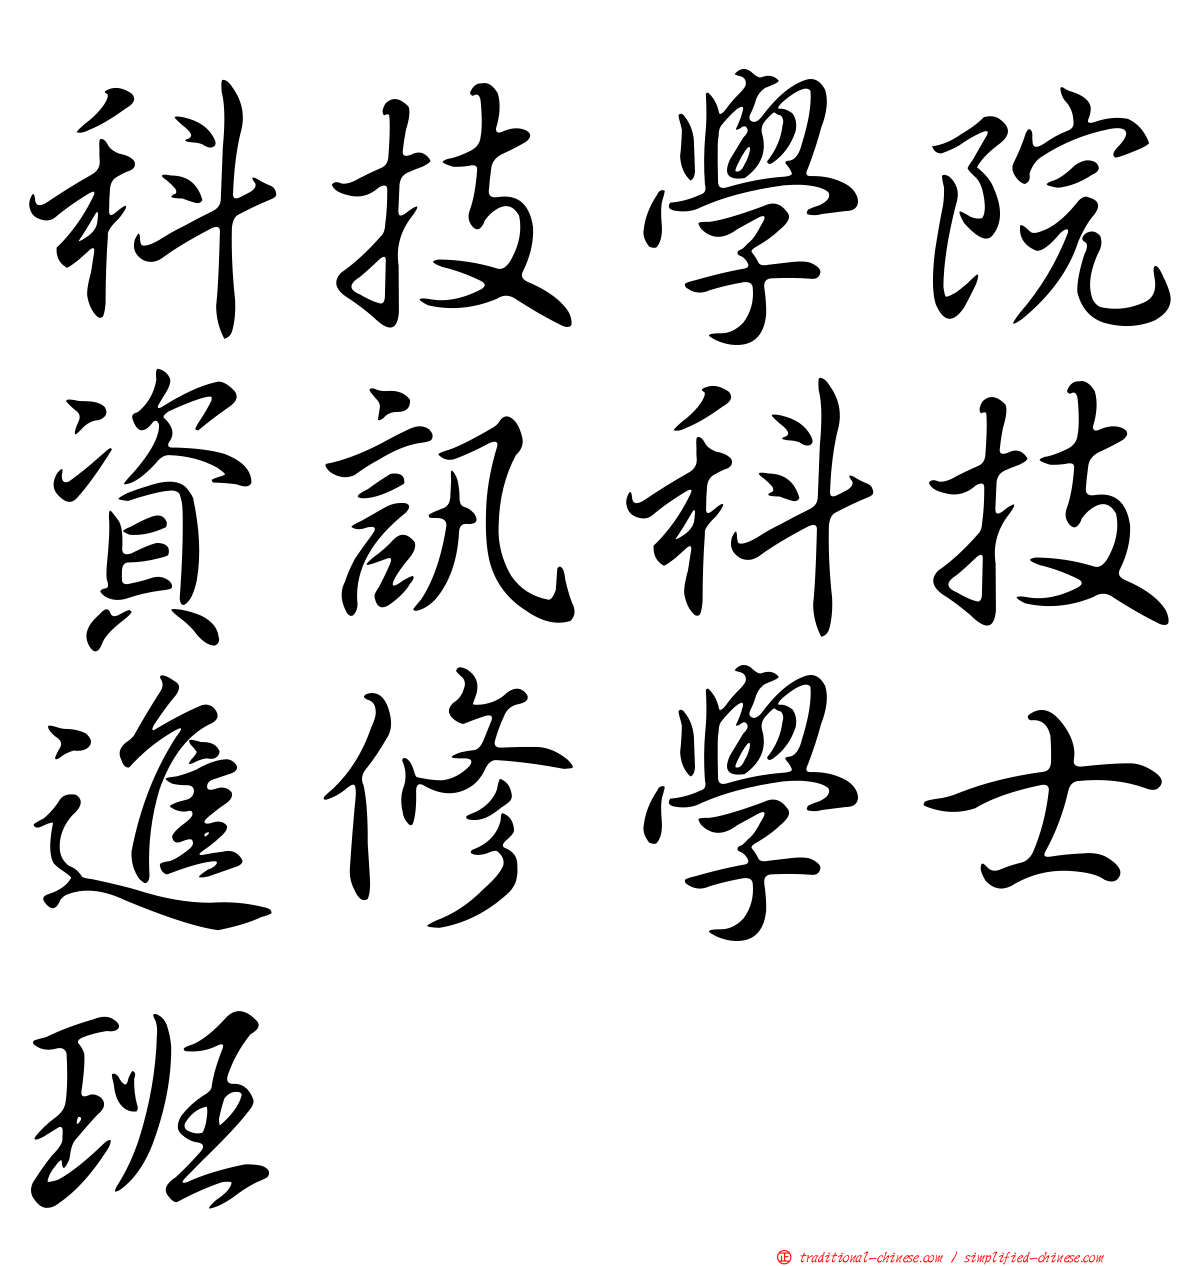 科技學院
資訊科技
進修學士
班
正 traditional-chinese.com / simplified-chinese.com